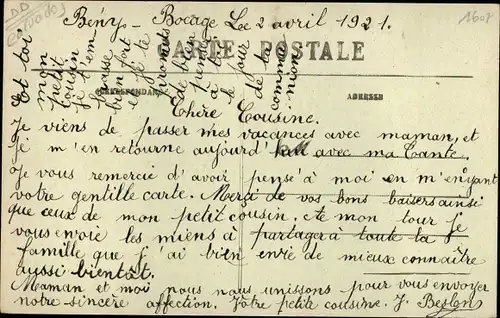 Bény-Bocage Le 2 avril 1921.
CARTE POSTALE
CORRESPONDANCE
ADRESSE
Chère Cousine.
Je viens de passer mes vacances avec maman, et
je m'en retourne aujourd'hui avec ma Tante.
Je vous remercie d'avoir pensé à moi en m'envoyant
votre gentille carte. Merci de vos bons baisers ainsi
que ceux de mon petit cousin. A mon tour je
vous envoie les miens à partager à toute la
famille que j'ai bien envie de mieux connaître
aussi bientôt.
Maman et moi nous nous unissons pour vous envoyer
notre sincère affection. Votre petite cousine. J. Beslon
Et toi
mon
petit
Cousin
je t'em-
brasse
bien fort
et je te
promets
de bien
penser
à toi
le jour
de ta
commu-
nion
1607